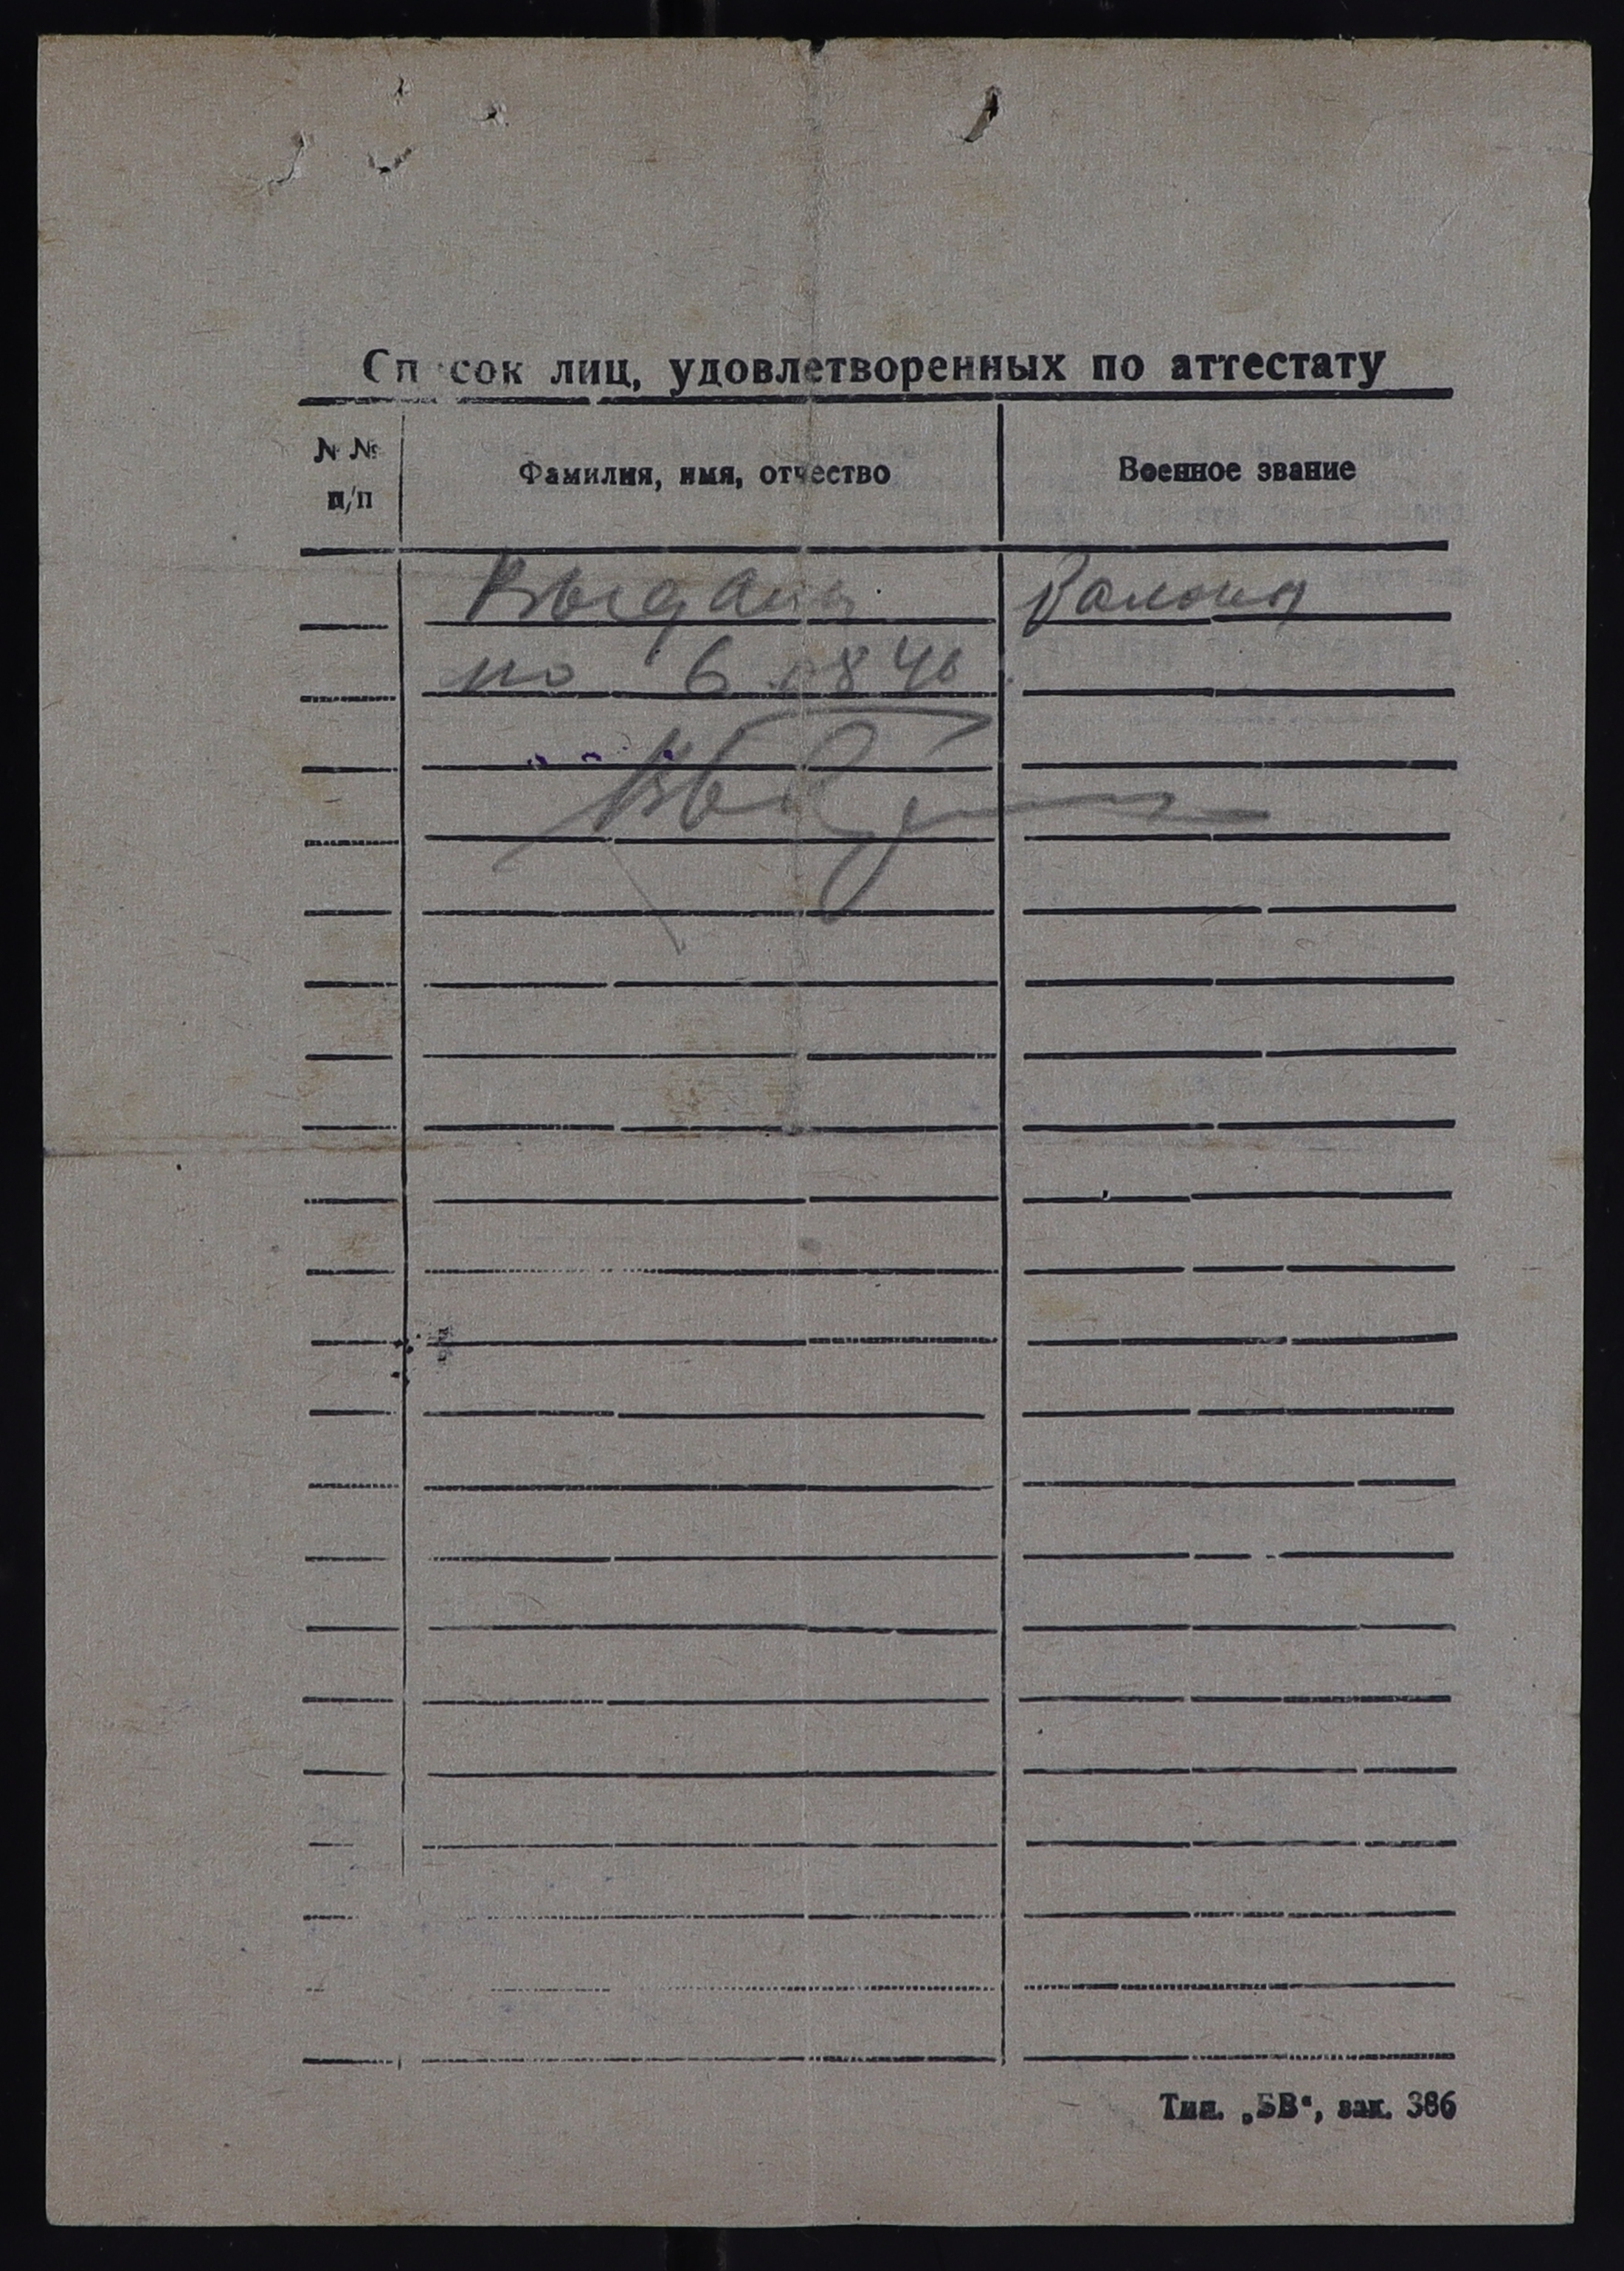 Список лиц, удовлетворенных по аттестату
№ №
п/п
Фамилия, имя, отчество
Военное звание
Выдана
по 6.0846
Тип. „БВ“, зак. 386